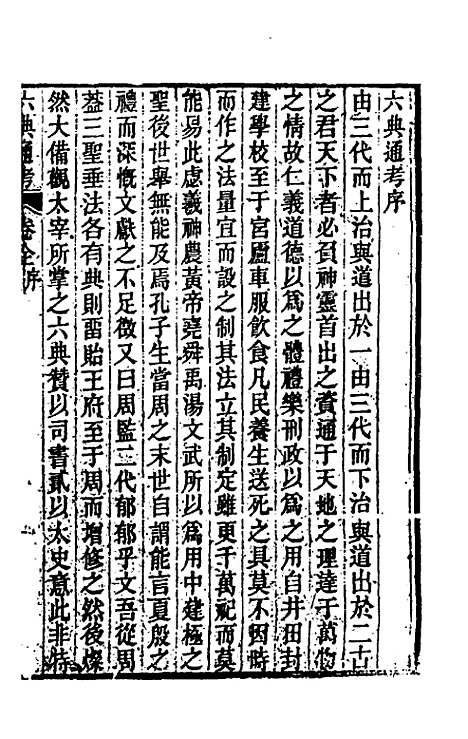 六典通考序
由三代而上治與道出於一由三代而下治與道出於二古
之君天下者必負神靈首出之資通于天地之理達于萬物
之情故仁義道德以爲之體禮樂刑政以爲之用自井田封
建學校至于宮廬車服飮食凡民養生送死之具莫不因時
而作之法量宜而設之制其法立其制定雖更千萬祀而莫
能易此虙羲神農黃帝堯舜禹湯文武所以爲用中建極之
聖後世舉無能及焉孔子生當周之末世自謂能言夏殷之
禮而深慨文獻之不足徵又曰周監二代郁郁乎文吾從周
葢三聖垂法各有典則畱貽王府至于周而增修之然後燦
然大備觀太宰所掌之六典贊以司書貳以太史意此非特
六典通考 卷全序